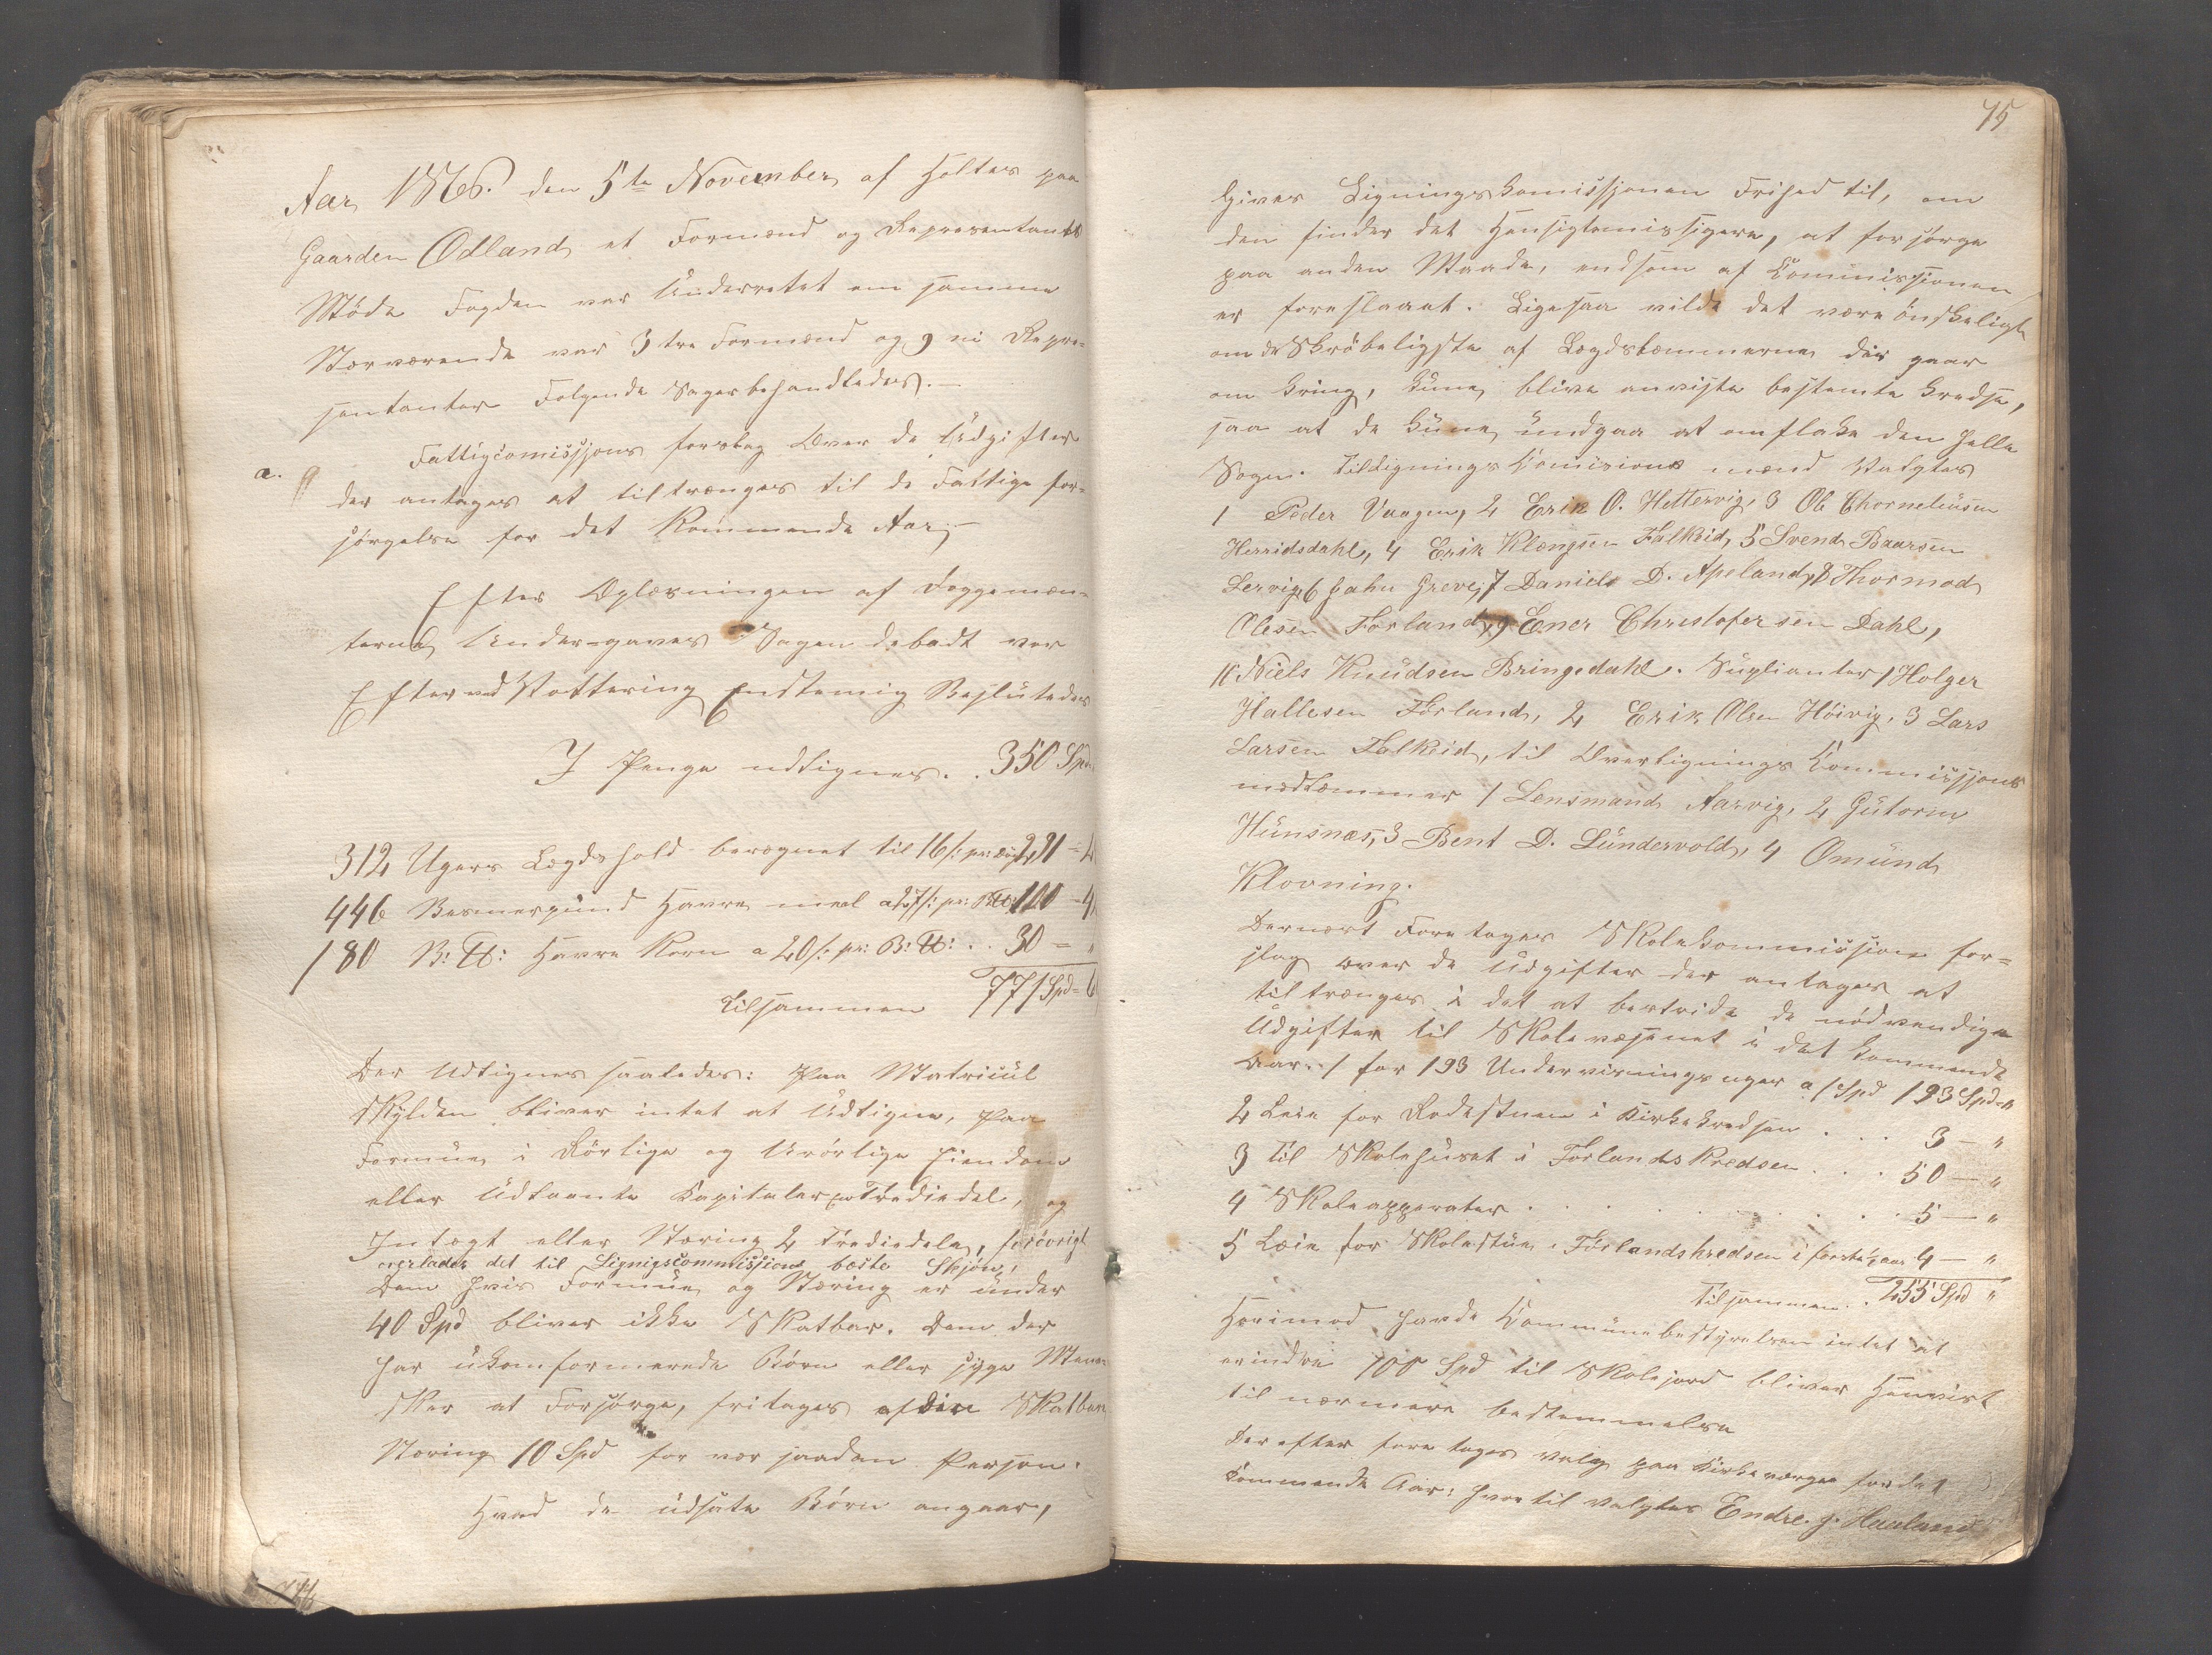 Aar 1866. den 5te November af Holtes paa
Gaarden Odland et Formænd og Repræsentants
Møde Fogden var Underrettet om samme
Nærværende var 3 tre Formænd og 9 ni Repræ-
sentanter Følgende Sager behandledes.—
a. Fattigcomissjons forslag Over de Udgifter
der antages at tiltrænges til de Fattige for-
sørgelse for det Kommende Aar;—
Efter Oplæsningen af Doggemæn-
terne Under-gaves Sagen debadt vor
Efter ved Vottering Enstemig Besluttedes
I Penge udlignes. . 350 Spd
312 Ugers Lægdshold beregnet til 16 s: pr: 291 = 4
446 Besmerpund Havre meel a 27 s: pr: B℔: 100 – 4
180 B: ℔: Havre Korn a 20 s: pr: B: ℔: . . 30 = "
Tilsammen 771 Spd = 6
Der Udlignes saaledes: Paa Matricul
skylden bliver intet at Udligne, paa
Formue i Rørlige og Urørlige Eiendom
eller Udlaante Kapitaler en Trediedel, og
Indtægt eller Næring 2 Trediedele, forøvrigt
overlades det til Lignigscommissjions bæste Skjøn,
Dem hvis Formue og Næring er under
40 Spd bliver ikke Skatbar. Dem der
har ukomfermerede Børn eller syge Menne-
sker at Forsørge, fritages af den Skatbare
Næring 10 Spd for vær saadan Person.
Hvad de udsatte Børn angaar,
75
Gives Ligningskomissjonen Frihed til, om
den finder det Hensigtsmæssigere, at forsørge
paa anden Maade, endsom af Commissionen
er foreslaaet. Ligesaa vilde det være ønskeligt
om de Skrøbeligste af Lægdslæmmerne der gaar
om kring, kune blive anviste bestemte Kredse,
saa at de kune undgaa at omflakke den hele
Sogn. Tilligningskomisions mænd Valgtes
1 Peder Vaagen, 2 Erik O. Hettervig, 3 Ole Chorneliusen
Herridsdahl, 4 Erik Klængsen Falkeid, 5 Svend Baarsen
Lervig, 6 Jahn Greve, 7 Daniel D. Apeland, 8 Thormod
Olesen Førland, 9 Ener Christofersen Dahl,
10 Niels Knudsen Bringedahl. Suplianter 1 Holger
Hallesen Førland, 2 Erik Olsen Høivig, 3 Lars
Larsen Falkeid, til Overlignings Commissjons
medlæmmer 1 Lensmand Aarvig, 2 Gutorm
Hunsnæs, 3 Bent D. Lundervold, 4 Omund
Klovning.
Dernæst Foretages Skolekommission for-
slag over de Udgifter der antages at
tiltrænges i det at bestride de nødvendige
Udgifter til Skolevæsenet i det kommende
Aar. 1 for 193 Undervisningsuger a 1 Spd 193 Spd = "
2 Leie for Rodestuen i Kirkekredsen . . . 3 — "
3 Til Skolehuset i Førlands Kredsen . . . 50 — "
4 Skoleapperater . . . . . . . . . . 5 — "
5 Læie for Skolestue i Førlandskredsen i første ½ aar 4 — "
Tilsammen . . 255 Spd "
Herimod havde Communebestyrelsen intet at
erindre 100 Spd til Skolejord bliver Henvist
til nærmere bestemmelse
Derefter foretoges valg paa Kirkeværge for det
kommende Aar: hvortil valgtes Endre J. Haaland